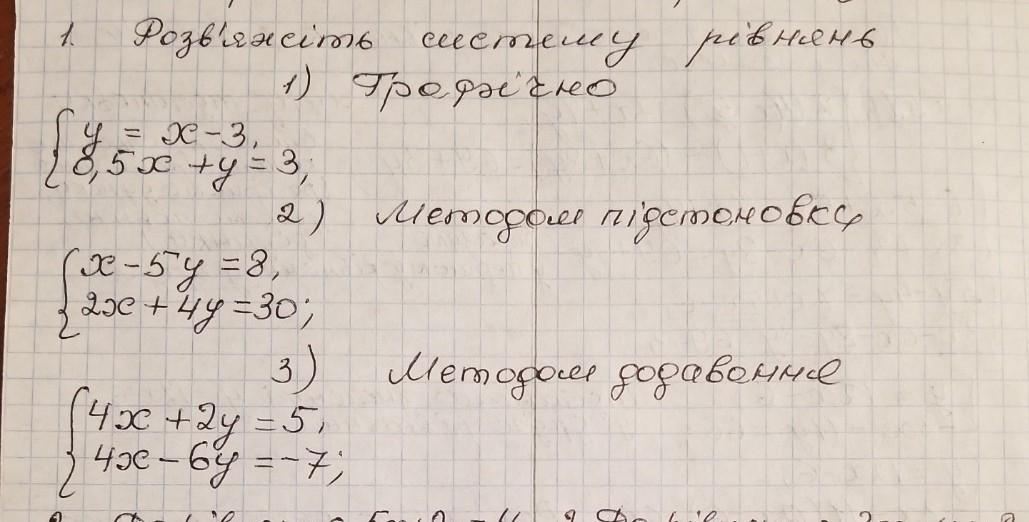 1. Розв'яжіть систему рівнянь
1) Графічно
y = x - 3,
0,5x + y = 3;
2) Методом підстановки
x - 5y = 8,
2x + 4y = 30;
3) Методом додавання
4x + 2y = 5,
4x - 6y = -7;